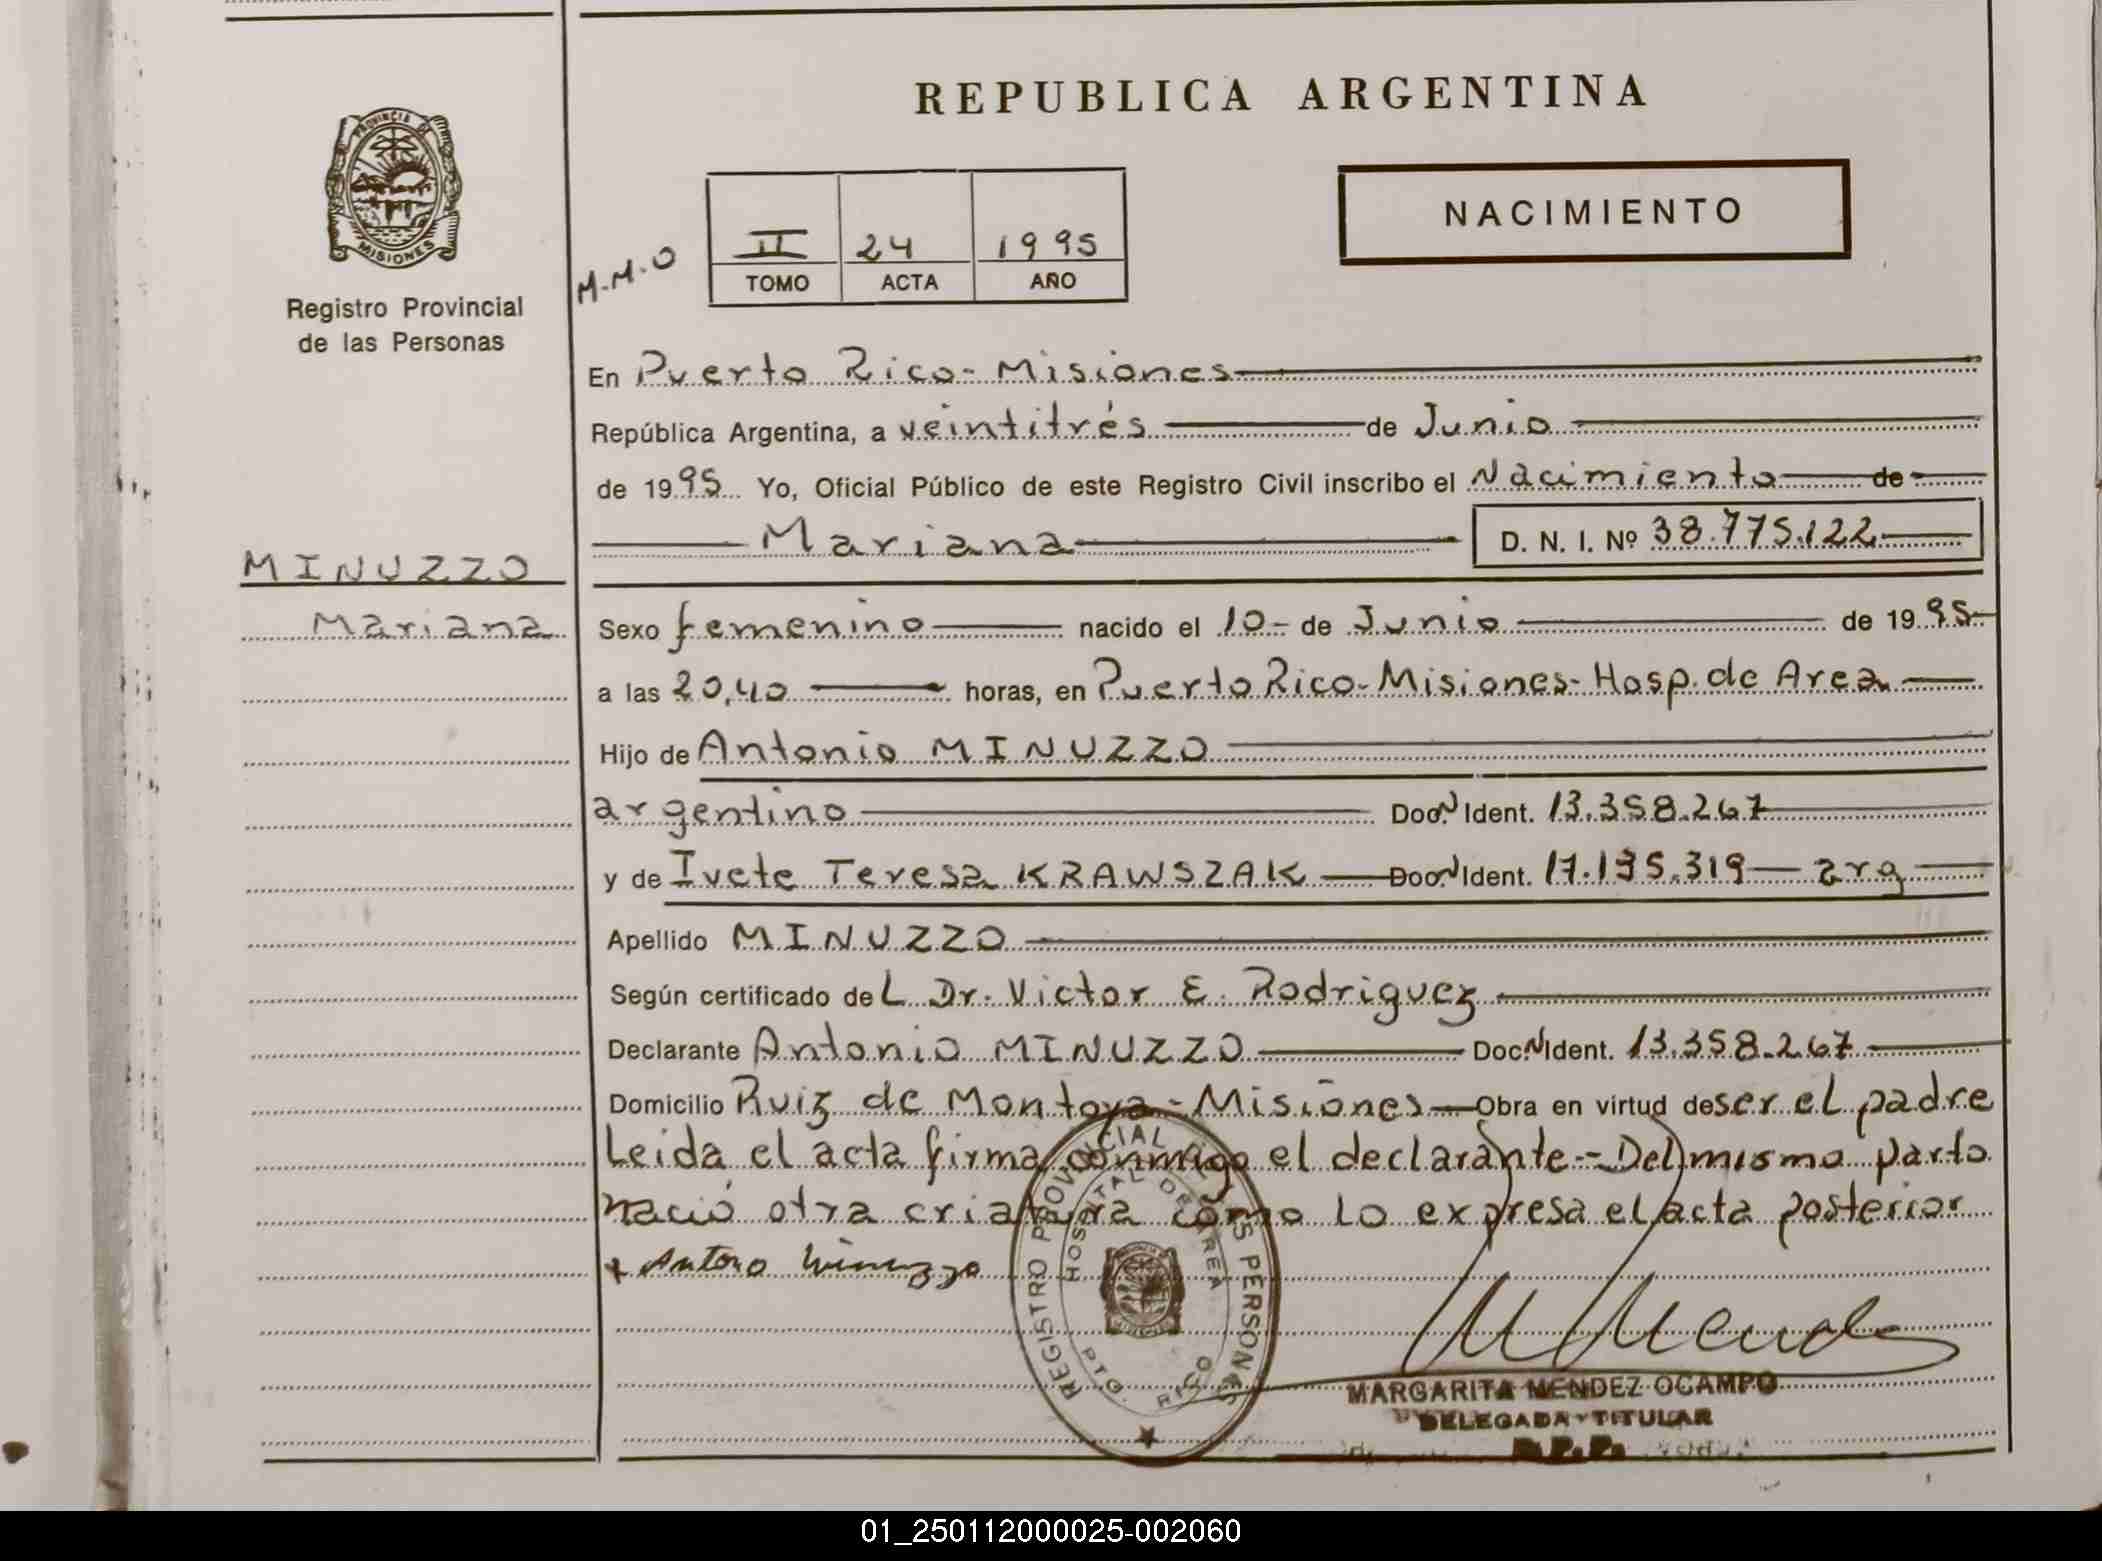 REPUBLICA ARGENTINA
PROVINCIA DE MISIONES
Registro Provincial
de las Personas
M.M.O
II 24 1995
TOMO ACTA AÑO
NACIMIENTO
En Puerto Rico - Misiones
República Argentina, a veintitrés de Junio
de 1995 Yo, Oficial Público de este Registro Civil inscribo el Nacimiento de
Mariana D. N. I. Nº 38.775.122
MINUZZO
Mariana
Sexo femenino nacido el 10- de Junio de 1995-
a las 20,40 horas, en Puerto Rico - Misiones - Hosp. de Area
Hijo de Antonio MINUZZO
argentino Doc. N Ident. 13.358.267
y de Ivete Teresa KRAWSZAK Doc. N Ident. 17.135.319 - arg
Apellido MINUZZO
Según certificado de L Dr. Victor E. Rodriguez
Declarante Antonio MINUZZO Doc. N Ident. 13.358.267
Domicilio Ruiz de Montoya - Misiones Obra en virtud de ser el padre
Leida el acta firma conmigo el declarante -- Del mismo parto
nació otra criatura como lo expresa el acta posterior
+ Antonio Minuzzo
REGISTRO PROVINCIAL DE LAS PERSONAS
HOSPITAL DE AREA
PTO. RICO
M Mende
MARGARITA MENDEZ OCAMPO
DELEGADA TITULAR
R.P.P.
01_250112000025-002060